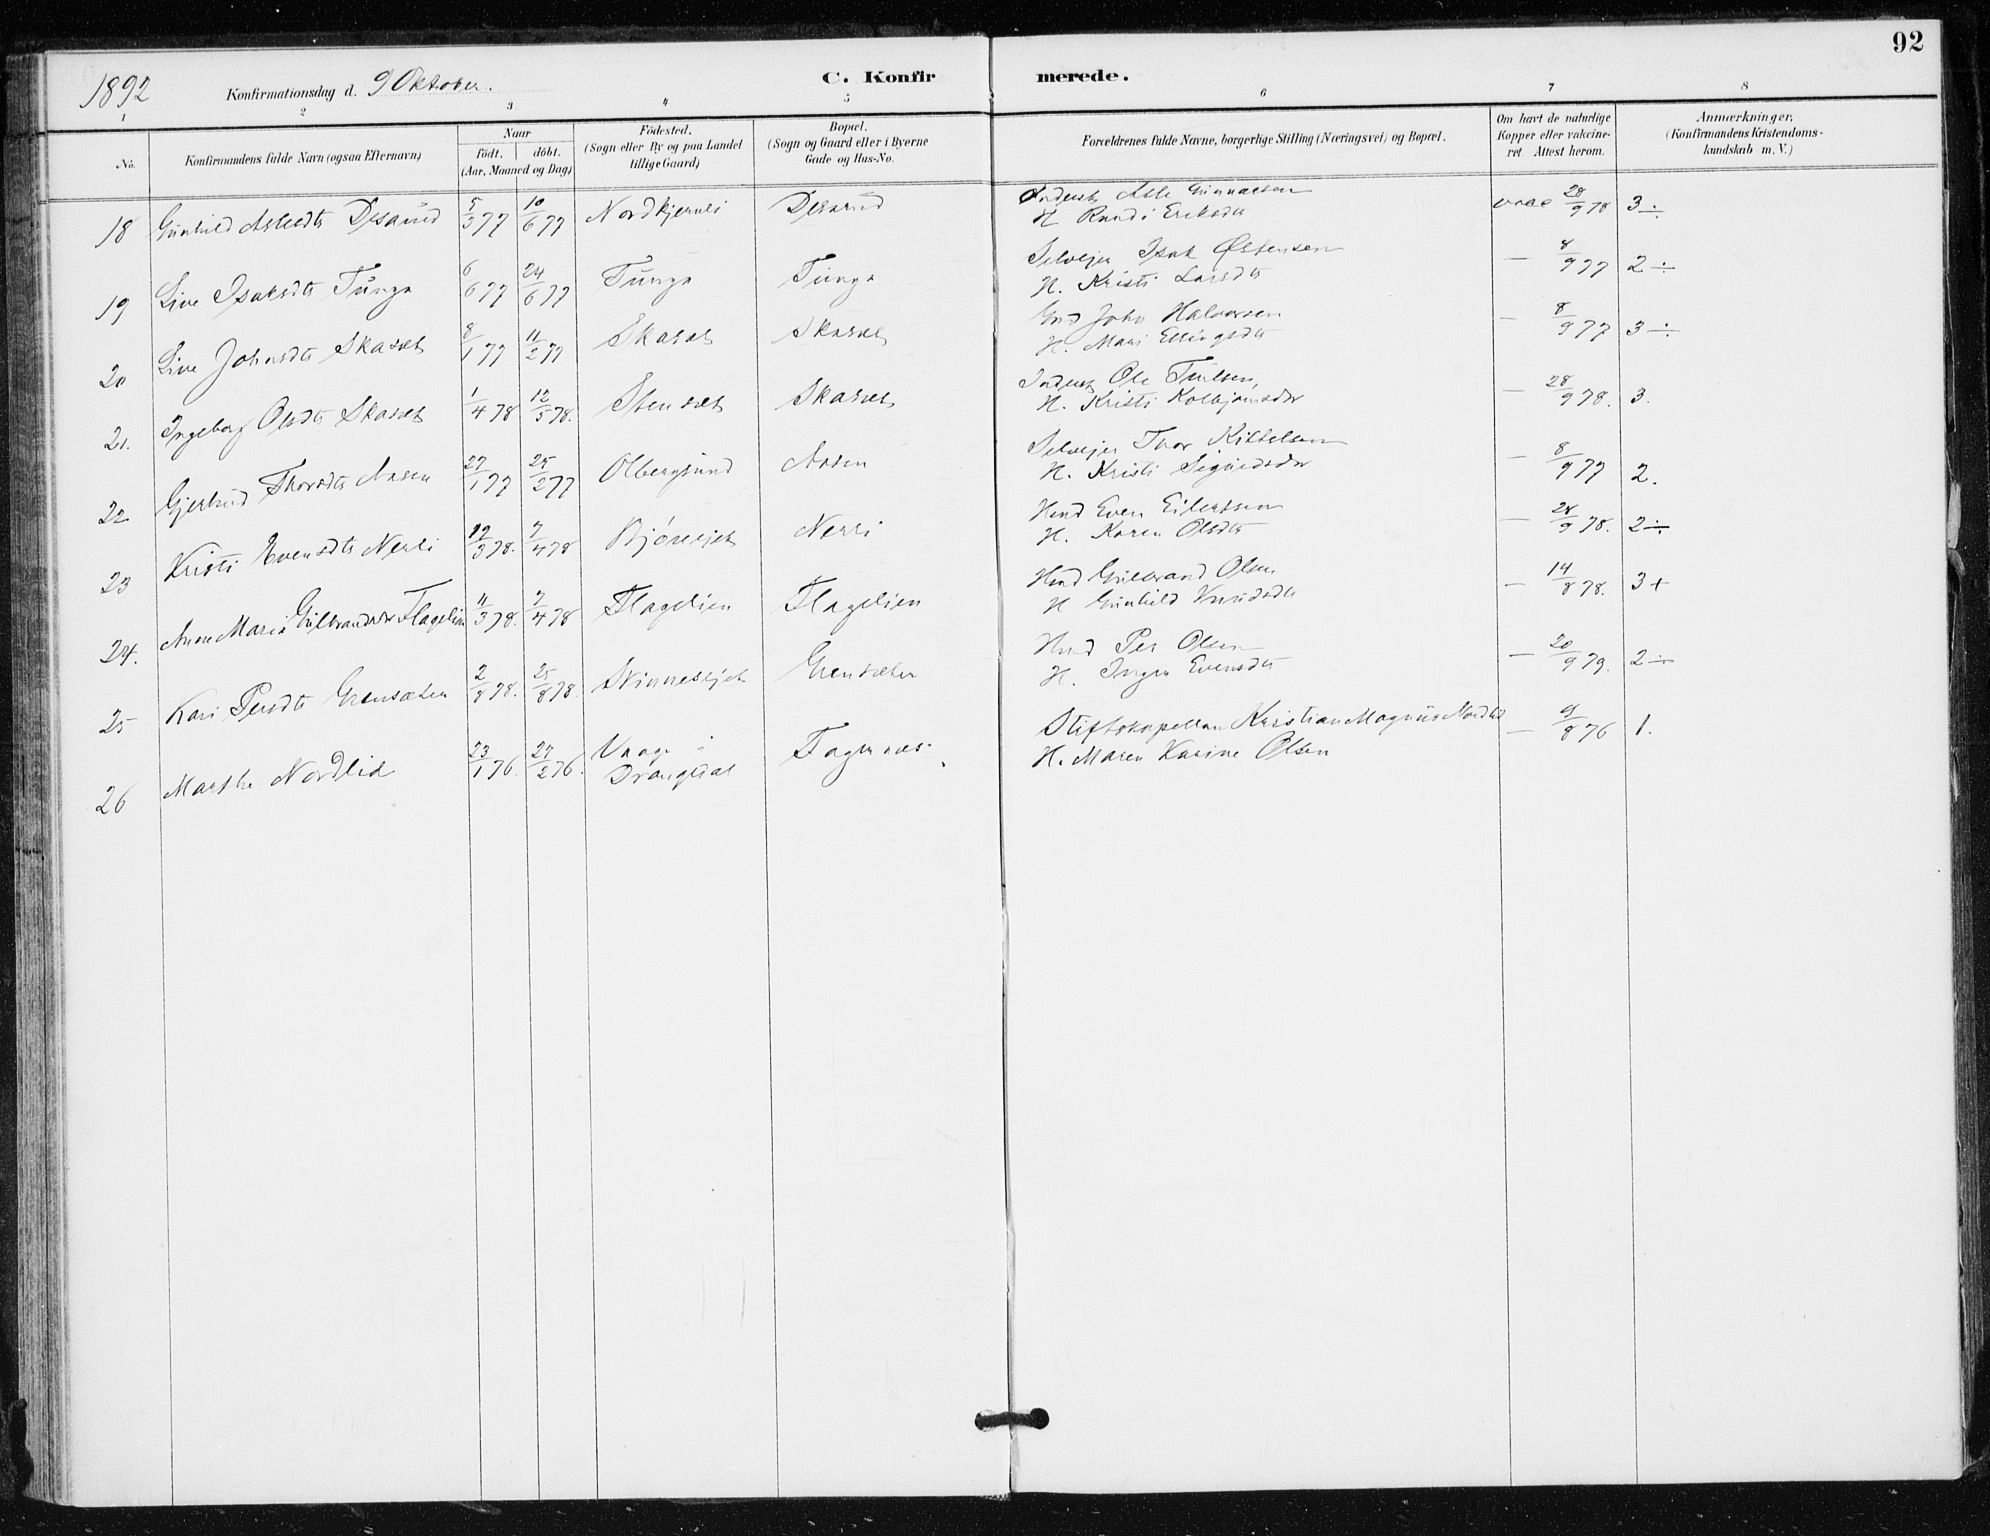 92
C. Konfirmerede.
1892 Konfirmationsdag d. 9 Oktober.
1 2 3 4 5 6 7 8
No. Konfirmandens fulde Navn (ogsaa Efternavn) Naar Födt. döbt. (Aar, Maaned og Dag) Födested. (Sogn eller By og paa Landet tillige Gaard) Bopæl. (Sogn og Gaard eller i Byerne Gade og Hus-No. Forældrenes fulde Navne, borgerlige Stilling (Næringsvei) og Bopæl. Om havt de naturlige Kopper eller vakcineret. Attest herom. Anmærkninger, (Konfirmandens Kristendomskundskab m. V.)
18 Gunhild Aslesdtr 5/3 77 10/6 77 Inderst Asle Gunnarsen vacc 28/9 78 3 ÷
H. Randi Eriksdtr
19 Live Isaksdtr Tunga 6/6 77 24/6 77 Tunga Tunga Selveier Isak Østensen — 8/9 77 2 ÷
H. Kristi Larsdtr
20 Live Johnsdtr Skaset 8/1 77 11/2 77 Skaset Skaset John Halvorsen — 8/9 77 3 ÷
H. Mari Ellingsdtr
21. Ingeborg Olsdtr Skaset 1/4 78 12/5 78. Skaset Inderst Ole — 28/9 78. 3.
H. Kristi Kolbjørnsdtr
22 Gjertrud Thorsdtr Aasen 27/1 77 25/2 77 Aasen Selveier Thor Kittelsen — 8/9 77 2.
H. Kristi Sigurdsdtr
23 Kristi Evensdtr Nerli 12/3 78. 7/4 78 Nerli Hmd Even Eilertsen — 28/9 78. 2 ÷
H. Karen Olsdtr
24. Anne Maria Gulbrandsdtr Flagelien 11/3 78. 7/4 78 Flagelien Flagelien Hmd Gulbrand Olsen — 14/8 78. 3 +
H Gunhild Knudsdtr
25 Kari Persdtr Grensæter 2/8 78. 25/8 78. Grensæter Hmd Per Olsen — 20/9 79. 2 ÷
H. Evensdtr
26 Marthe Nordlid 23/1 76. 27/2 76. i Drangedal Fagernes. Stiftskapellan Kristian Magnus Nordlid — 9/8 76 1.
H. Maren Karine Olsen